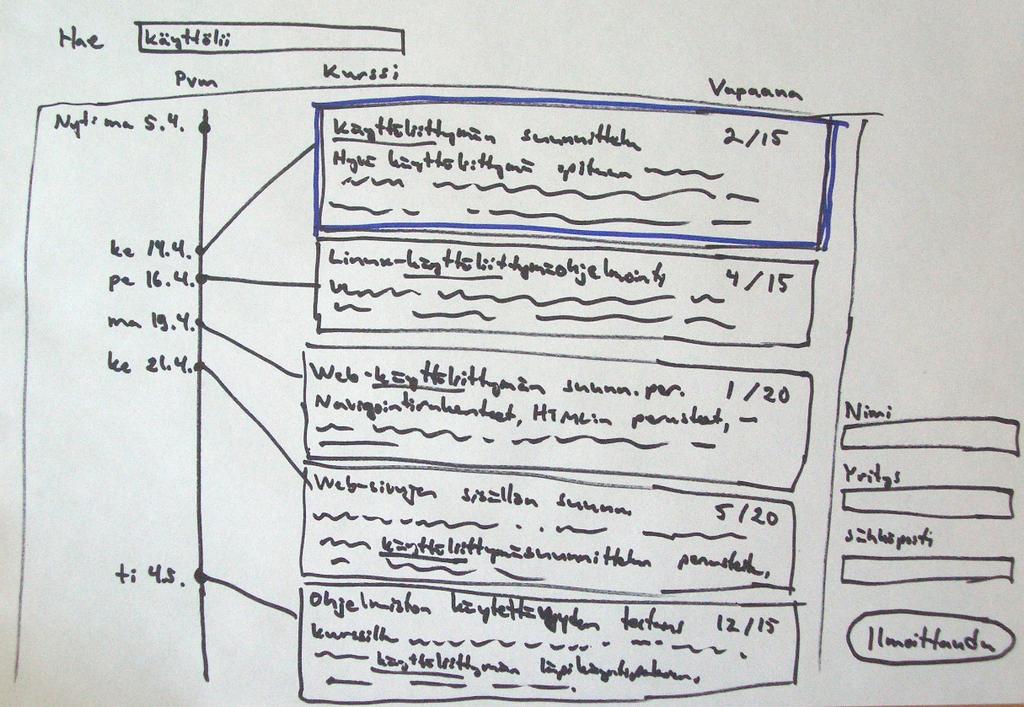 Hae käyttölii
Pvm Kurssi Vapaana
Nyt: ma 5.4.
Käyttöliittymän suunnittelu 2/15
Hyvä käyttöliittymä
ke 14.4.
Linux-käyttöliittymäohjelmointi 4/15
pe 16.4.
ma 19.4.
Web-käyttöliittymän suunn. per. 1/20
ke 21.4.
Navigointirakenteet, HTML:n perusteet,
Nimi
Web-sivujen sisällön suunn. 5/20
Yritys
käyttöliittymäsuunnittelun perusteet.
sähköposti
ti 4.5.
Ohjelmiston käytettävyyden testaus 12/15
kurssilla
käyttöliittymän
Ilmoittaudu